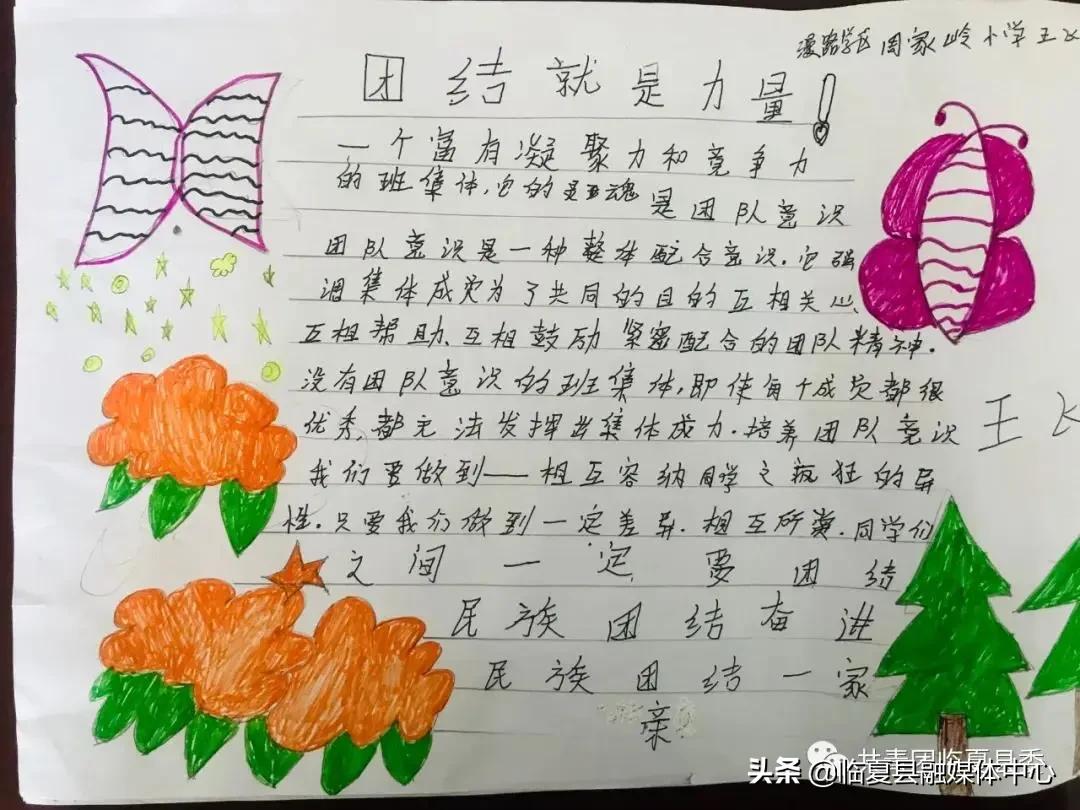 漫路学区周家岭小学王飞
团结就是力量!
一个富有凝聚力和竞争力
的班集体,它的灵魂是团队意识
团队意识是一种整体配合意识.它强
调集体成员为了共同的目的互相关心、
互相帮助、互相鼓励紧密配合的团队精神.
没有团队意识的班集体,即使每个成员都很
优秀,都无法发挥出集体成力.培养团队意识
我们要做到——相互容纳同学之疯狂的异
性.只要我们做到一定差异.相互所赏.同学们
之间一定要团结
民族团结奋进
民族团结一家
亲
王飞
共青团临夏县委
头条@临夏县融媒体中心